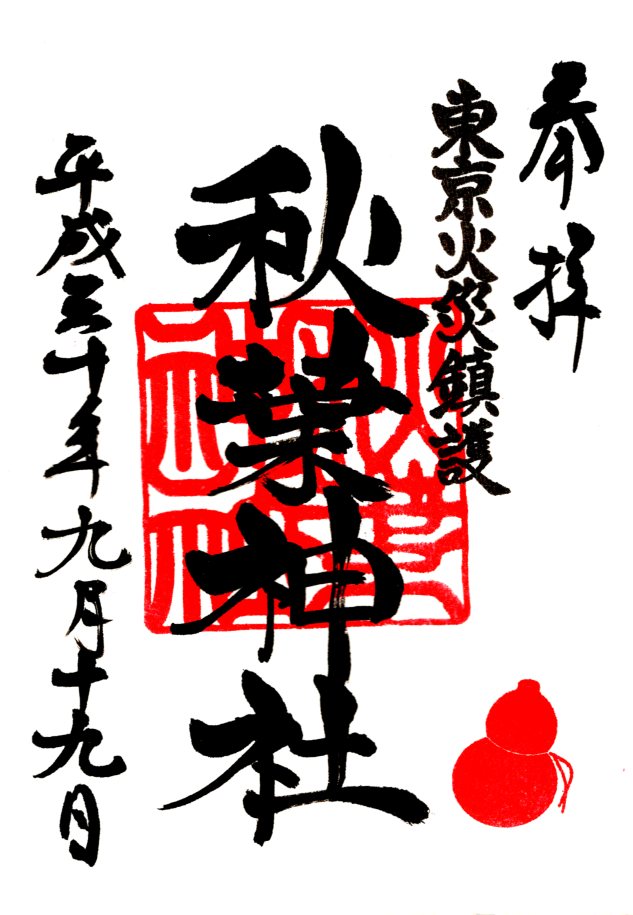 奉拝
東京火災鎮護
秋葉神社
平成三十年九月十九日